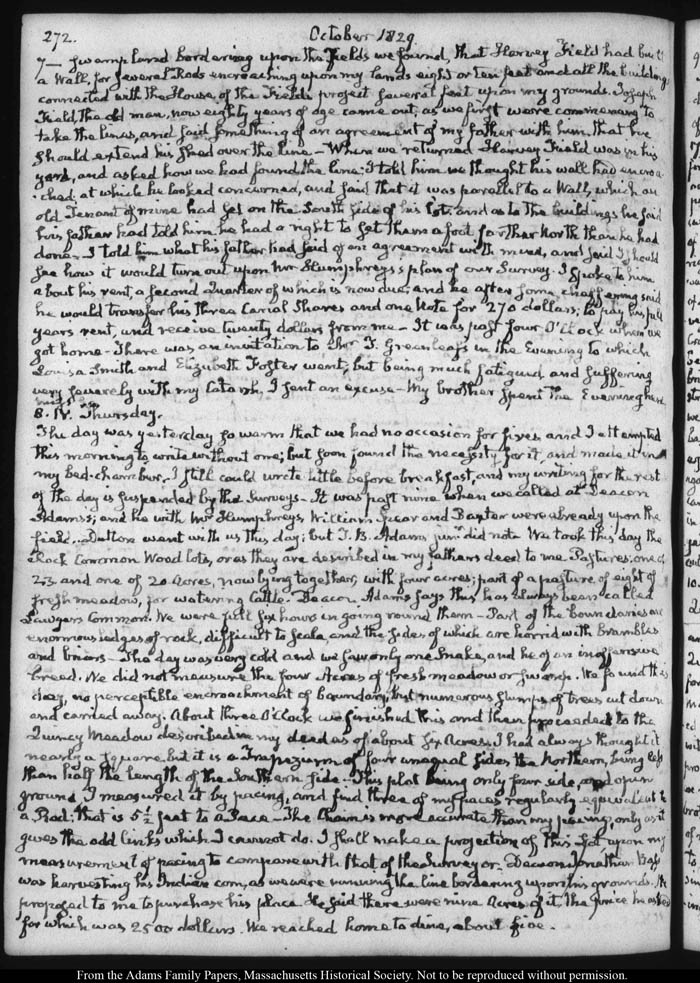 272. October 1829
7— swamp land bordering upon the Fields we found, that Harvey Field had built
a Wall, for several Rods encroaching upon my lands eight or ten feet and all the buildings
connected with the House of the Fields project several feet upon my grounds. Joseph
Field, the old man, now eighty years of age came out, as we first were commencing to
take the lines, and said something of an agreement of my father with him, that he
should extend his shed over the line— When we returned Harvey Field was in his
yard, and asked how we had found the line. I told him we thought his wall had encroa
-ched, at which he looked concerned, and said that it was parallel to a Wall, which an
old Tenant of mine had set on the South side of his lot, and as to the buildings he said
his father had told him he had a right to set them a foot farther North than he had
done. I told him what his father had said of an agreement with mine, and said I should
see how it would turn out upon Mr Humphreys's plan of our Survey. I spoke to him
about his rent, a second quarter of which is now due; and he after some chaffering said
he would transfer his three Canal Shares and one Note for 270 dollars, to pay his full
years rent, and receive twenty dollars from me— It was past four O'Clock when we
got home— There was an invitation to Thos. Greenleaf's in the Evening to which
Louisa Smith and Elizabeth Foster went; but being much fatigued and suffering
very severely with my Catarrh, I sent an excuse— My brother spent the Evening here
8. IV. Thursday.
The day was yesterday so warm that we had no occasion for fires and I attempted
this morning to write without one; but soon found the necessity for it, and made it in
my bed-chamber. I still could write little before breakfast, and my writing for the rest
of the day is suspended by the Surveys— It was past nine when we called at Deacon
Adams's; and he with Mr Humphreys, William Spear and Baxter were already upon the
field. Dutton went with us this day; but T. B. Adams junr. did not. We took this day the
Rock Common Wood lots, or as they are described in my fathers deed to me Pastures, one of
23 and one of 20 Acres, now lying together, with four acres; part of a pasture of eight of
fresh meadow, for watering Cattle. Deacon Adams says this has always been called
Lawyers Common. We were full six hours in going round them— Part of the boundaries are
enormous ledges of rock, difficult to scale, and the sides of which are horrid with brambles
and briars— The day was very cold and we saw only one Snake, and he of an inoffensive
breed. We did not measure the four Acres of fresh meadow or swamp. We found this
day, no perceptible encroachment of boundary, but numerous stumps of trees cut down
and carried away. About three O'Clock we finished this and then proceeded to the
Quincy Meadow described in my deed as of about six Acres. I had always thought it
nearly a square but it is a Trapezium of four unequal sides the Northern, being less
than half the length of the Southern side. This plot being only four side, and open
ground I measured it by pacing, and find three of my paces regularly equivalent to
a Rod: that is 5½ feet to a Pace— The Chain is more accurate than my pacing, only as it
gives the odd links which I cannot do. I shall make a projection of this lot upon my
measurement of pacing to compare with that of the Surveyor. Deacon Jonathan Bass
was harvesting his Indian corn, as we were running the line bordering upon his grounds. He
proposed to me to purchase his place. He said there were nine Acres of it. The price he asked
for which was 2500 dollars. We reached home to dine, about five.
From the Adams Family Papers, Massachusetts Historical Society. Not to be reproduced without permission.